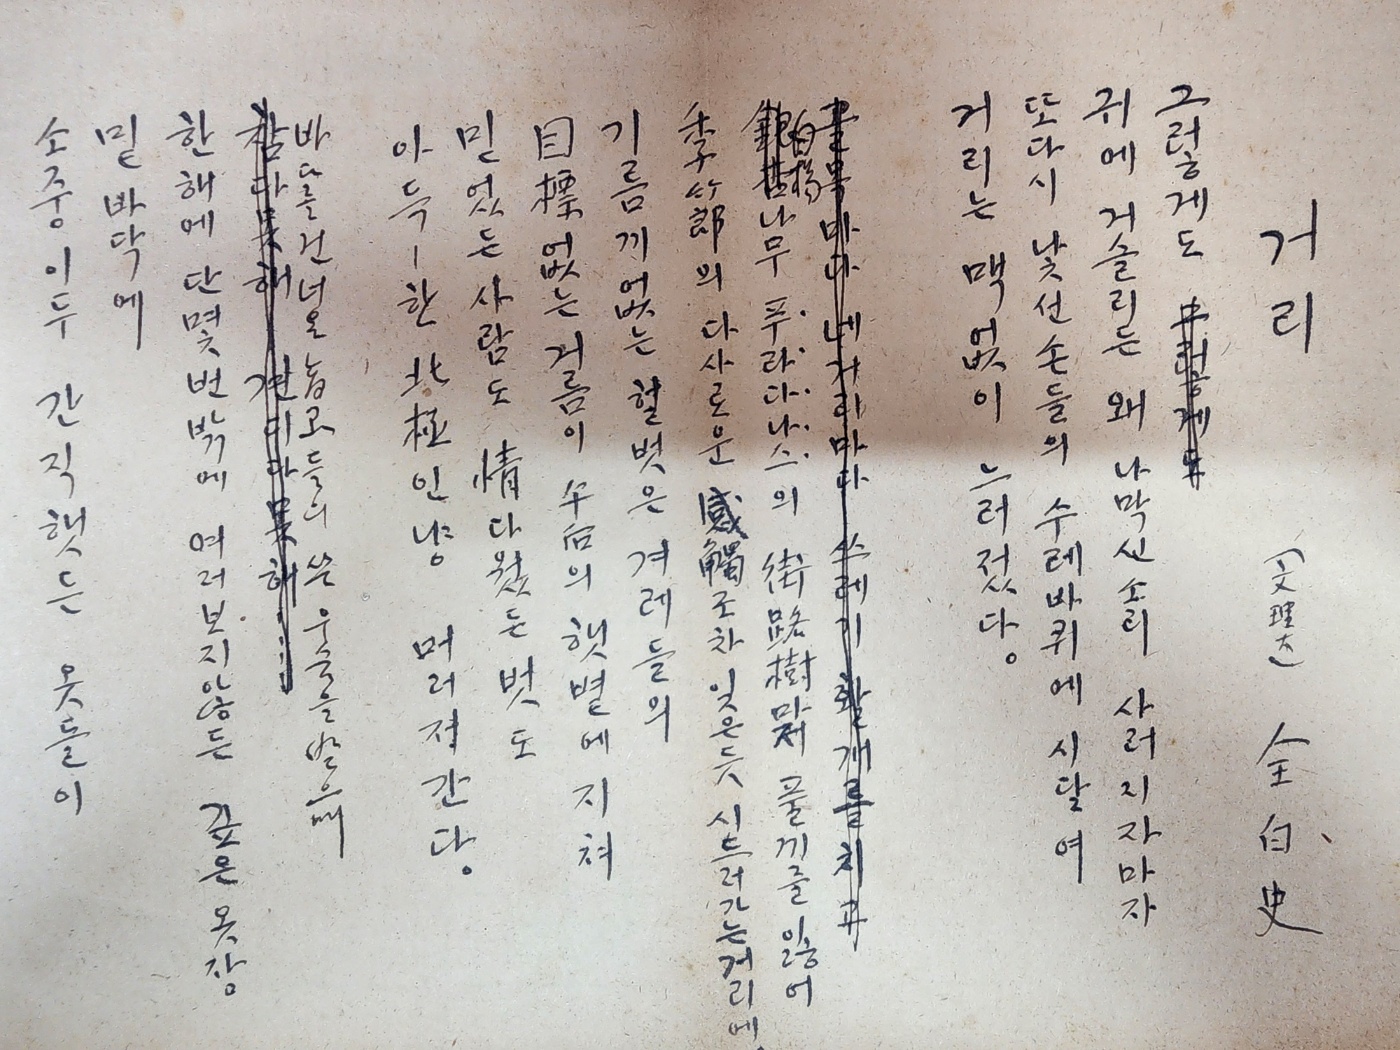 거리
(文理大) 全白史
그렇게도 그렇게도
귀에 거슬리든 왜 나막신소리 사러지자마자
또다시 낯선손들의 수레바퀴에 시달여
거리는 맥없이 느러젔다.
골목마다 네거리마다 쓰레기 활개를치고
白楊
銀杏나무 푸라다나스의 街路樹마저 풀끼를 잃어
季節의 다사로운 感觸조차 잊은듯 시드러가는거리에.
기름끼없는 헐벗은 겨레들의
目標없는거름이 午后의 햇볕에 지쳐
믿었든사람도 情다웠든벗도
아득ㅣ한 北極인냥 머러져간다.
바다를건너온 놈들의 쓴 웃음을
참다못해 견디다못해.....
한해에 단몇번밖에 여러보지않든 깊은옷장
밑바닥에
소중이두 간직햇든 옷들이